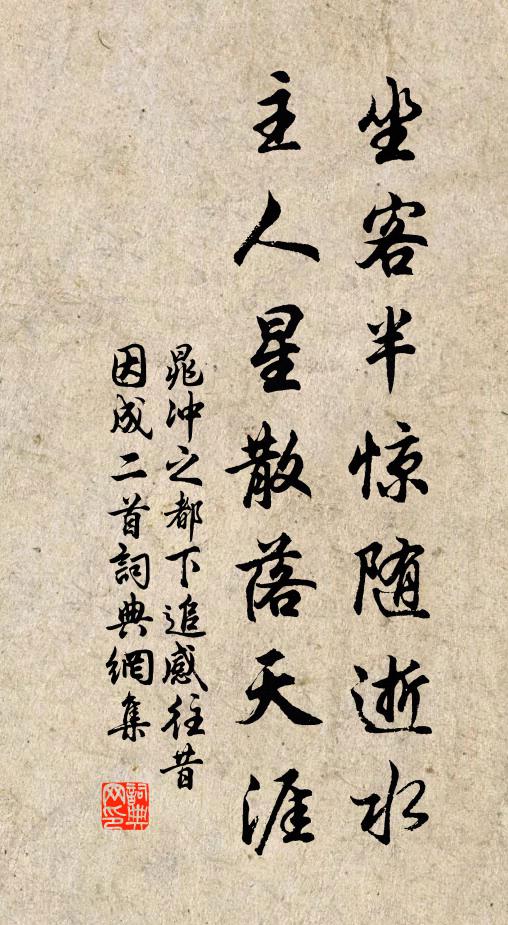 坐客半惊随逝水
主人星散落天涯
晁冲之都下追感往昔
因成二首詞典網集
詞典网印